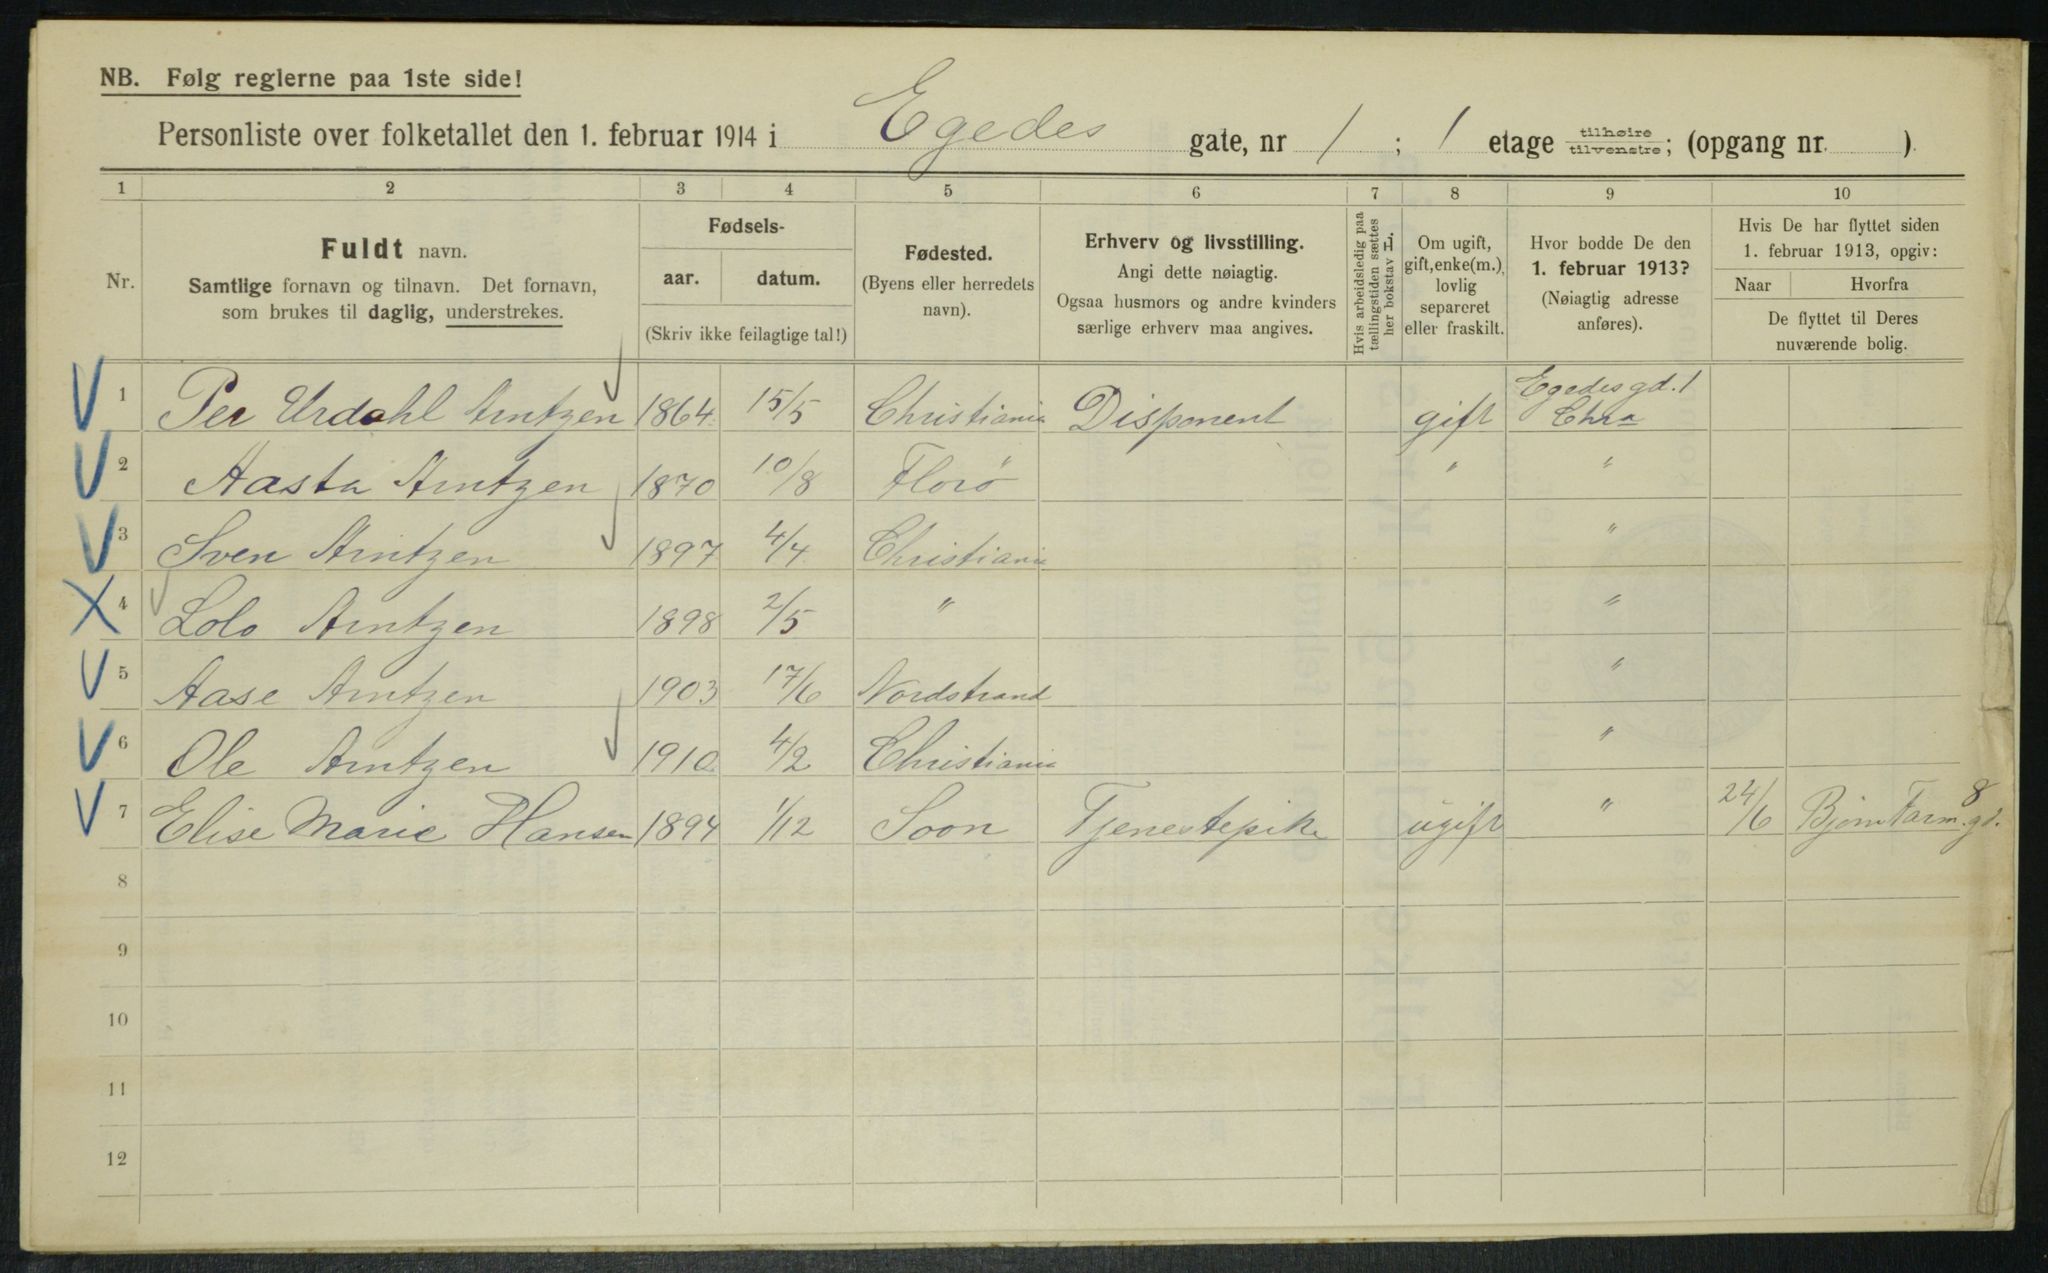 NB. Følg reglerne paa 1ste side!
Personliste over folketallet den 1. februar 1914 i Egedes gate, nr 1 ; 1 etage tilhøire / tilvenstre; (opgang nr. )
1 2 3 4 5 6 7 8 9 10
Nr.
Fuldt navn.
Samtlige fornavn og tilnavn. Det fornavn,
som brukes til daglig, understrekes.
Fødsels-
aar. datum.
(Skriv ikke feilagtige tal!)
Fødested.
(Byens eller herredets
navn).
Erhverv og livsstilling.
Angi dette nøiagtig.
Ogsaa husmors og andre kvinders
særlige erhverv maa angives.
Hvis arbeidsledig paa
tællingstiden sættes
her bokstav L.
Om ugift,
gift, enke(m.),
lovlig
separeret
eller fraskilt.
Hvor bodde De den
1. februar 1913?
(Nøiagtig adresse
anføres).
Hvis De har flyttet siden
1. februar 1913, opgiv:
Naar Hvorfra
De flyttet til Deres
nuværende bolig.
1 Per Urdahl Arntzen 1864 15/5 Christiania Disponent gift Egedesgd. 1 Chra
2 Aasta Arntzen 1870 10/8 Florø " "
3 Sven Arntzen 1897 4/4 Christiania "
4 Lolo Arntzen 1898 2/5 " "
5 Aase Arntzen 1903 17/6 Nordstrand "
6 Ole Arntzen 1910 4/2 Christiania "
7 Elise Marie Hansen 1894 1/12 Soon Tjenestepike ugift " 24/6 Bjørn Farm.gd. 8
8
9
10
11
12